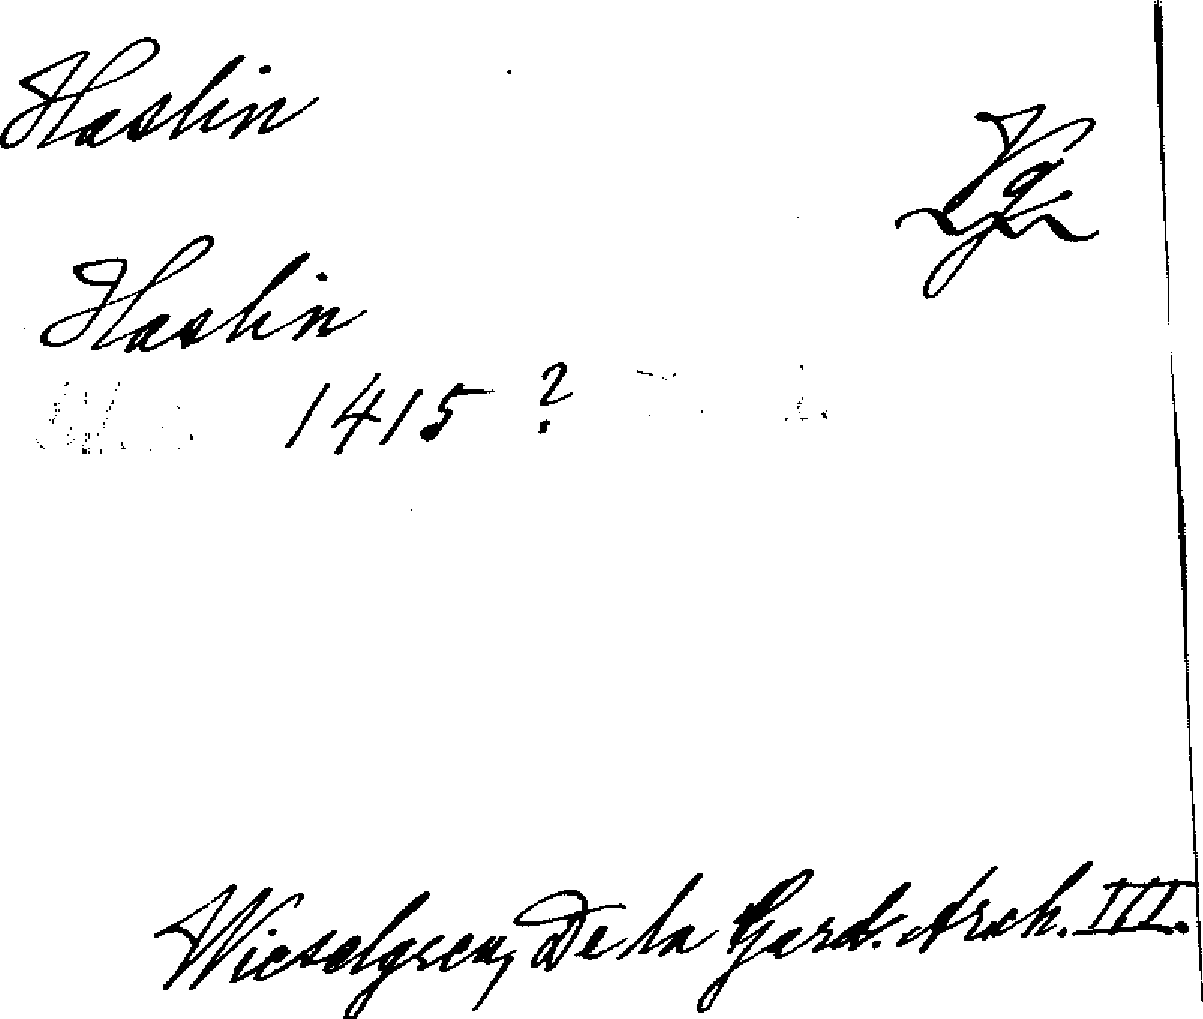 Haslin
Vg
Haslin
1415 ?
Wieselgren, De la Gard. Arch. III.